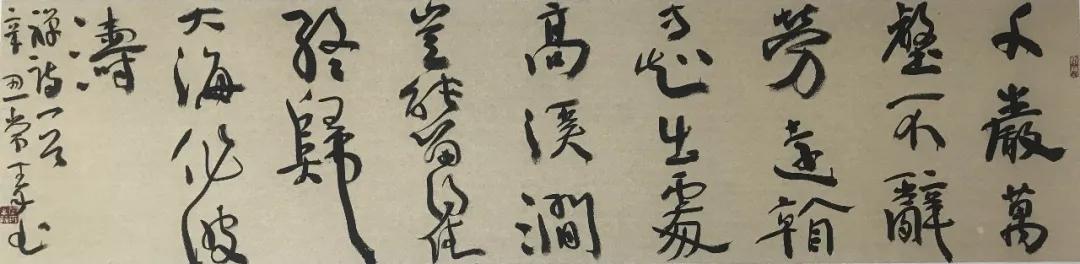 千巖萬
壑不辭
勞遠看
方知出處
高溪澗
豈能留得住
終歸
大海作波
濤
禪詩一首
辛丑常书